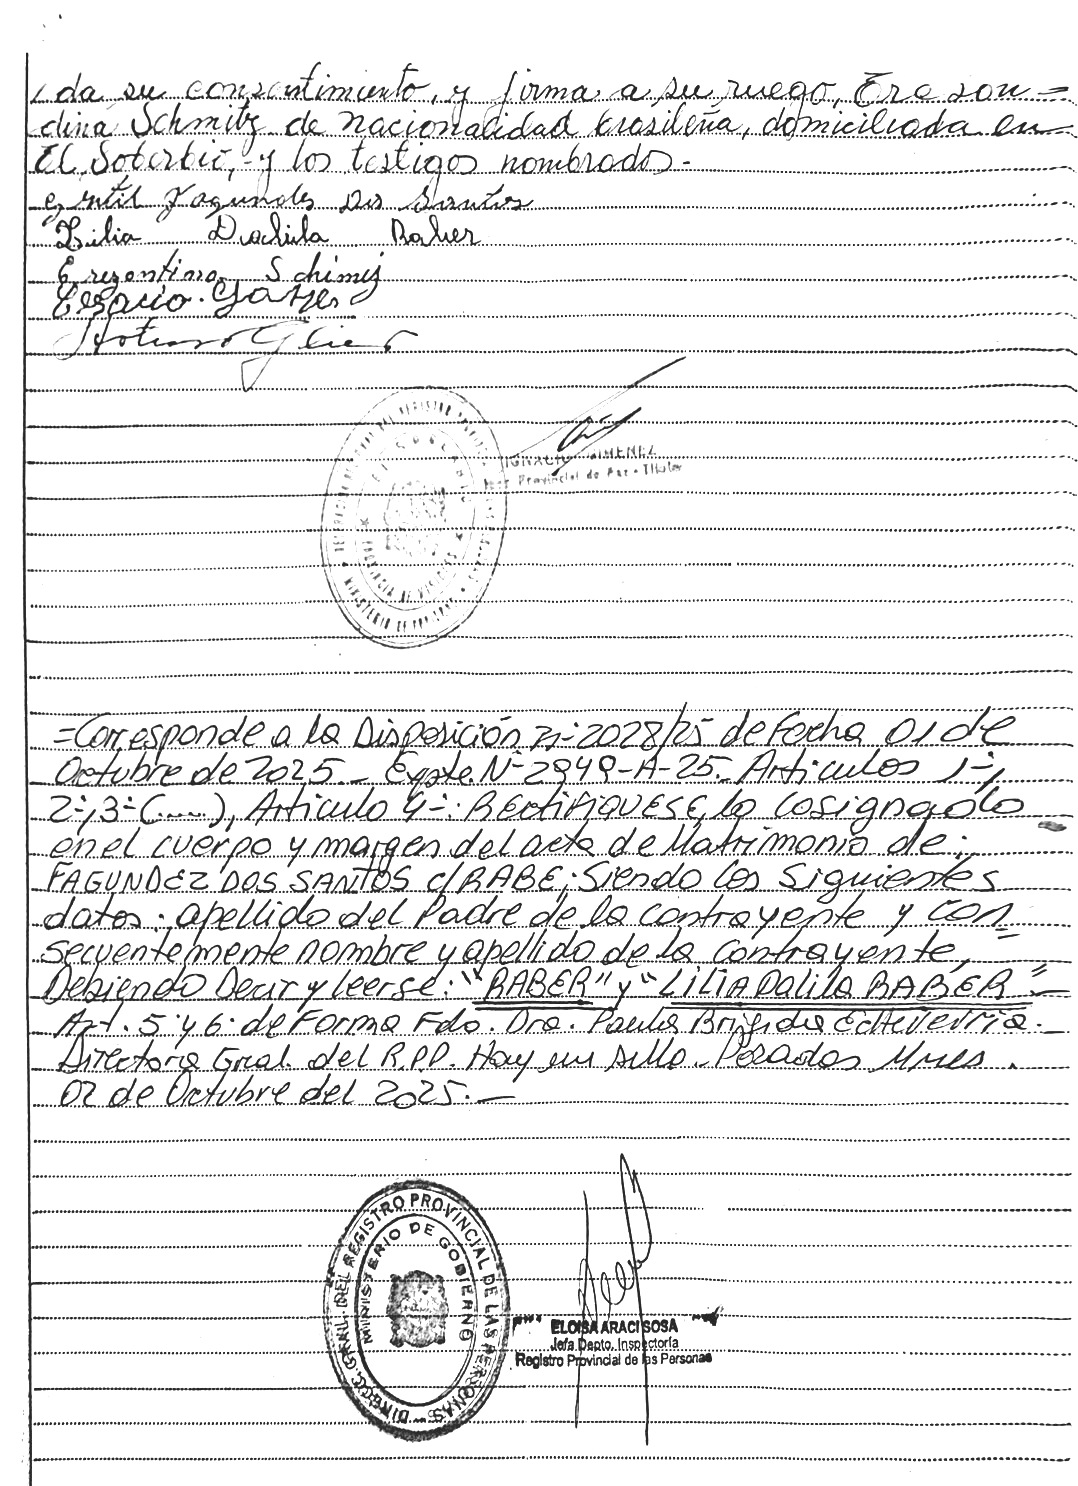 da su consentimiento, y firma a su ruego, Ere son=
dina Schmitz de nacionalidad brasileña, domiciliada en
El Soberbio, y los testigos nombrados.-
Gentil Fagundes Dos Santos
Lilia Dachila Raber
Erezontina Schimij
Horacio
IGNACIO GIMENEZ
Juez Provincial de Paz - Titular
PROVINCIA DE MISIONES
MINISTERIO DE
=Corresponde a la Disposición N- 2028/25 de Fecha 01 de
Octubre de 2025.- Expte. N- 2949-A-25- Articulos 1-,
2-, 3- (.....), Articulo 4-: RECTIFIQUESE, lo cosignado
en el cuerpo y margen del acta de Matrimonio de:
FAGUNDEZ DOS SANTOS c/ RABE; Siendo los siguientes
datos: apellido del Padre de la contrayente y con=
secuentemente nombre y apellido de la contrayente,
Debiendo Decir y leerse: "RABER" y "LILIA Dalila RABER"=
Art. 5- y 6- de Forma Fdo. Dra. Paula Brigida Echeverria.-
Directora Gral. del R.P.P. Hay un sello.- Posadas Mnes.
02 de Octubre del 2025.-
DIRECC. GRAL. DEL REGISTRO PROVINCIAL DE LAS PERSONAS
MINISTERIO DE GOBIERNO
ELOISA ARACI SOSA
Jefa Depto. Inspectoría
Registro Provincial de las Personas